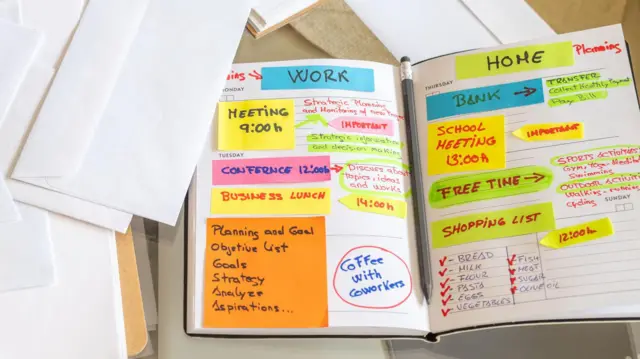 Planning
WORK
MONDAY
MEETING
9:00h
Strategic Planning
and Monitoring of
IMPORTANT
Strategic information
and decision making
TUESDAY
CONFERNCE 12:00h
Discuss about
topics, ideas
and works
BUSINESS LUNCH
14:00h
Planning and Goal
Objective List
Goals
Strategy
Analyze
Aspirations...
COFFEE
WITH
COWORKERS
HOME
Planning
THURSDAY
BANK
TRANSFER
Collect Monthly Payment
Pay Bill
SCHOOL
MEETING
13:00h
IMPORTANT
FREE TIME
SPORTS
Gym, Yoga, Meditation
Swimming
OUTDOOR ACTIVITIES
Walking
cycling
SUNDAY
SHOPPING LIST
12:00h
BREAD
MILK
FLOUR
PASTA
EGGS
VEGETABLES
FISH
MEAT
SUGAR
OLIVE OIL